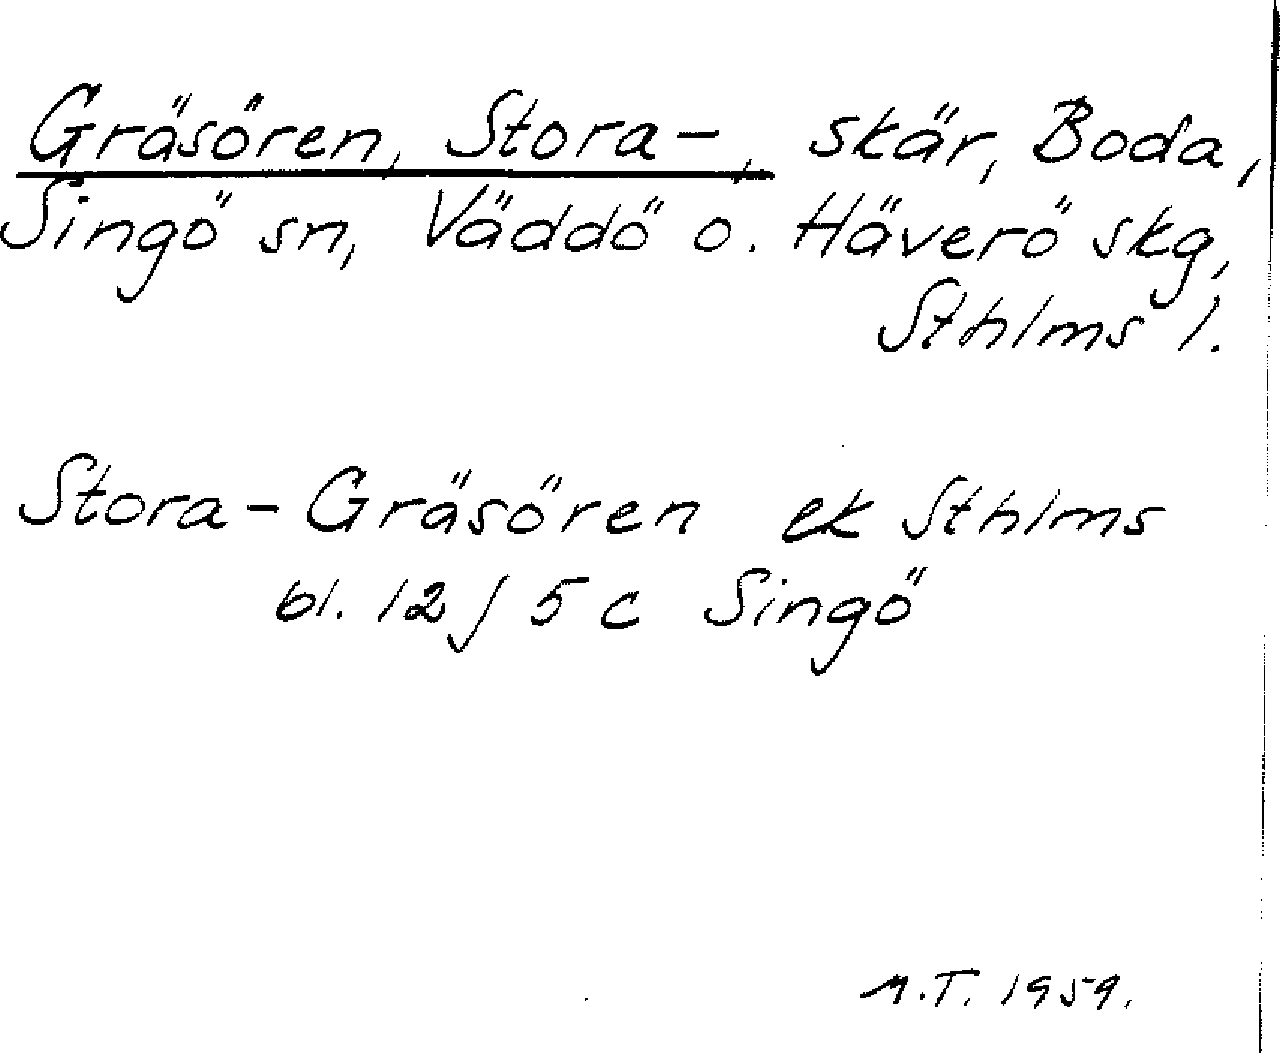 Gräsören, Stora-, skär, Boda,
Singö sn, Väddö o. Häverö skg,
Sthlms l.
Stora-Gräsören ek Sthlms
bl. 12 J 5 c Singö
M.T. 1959.